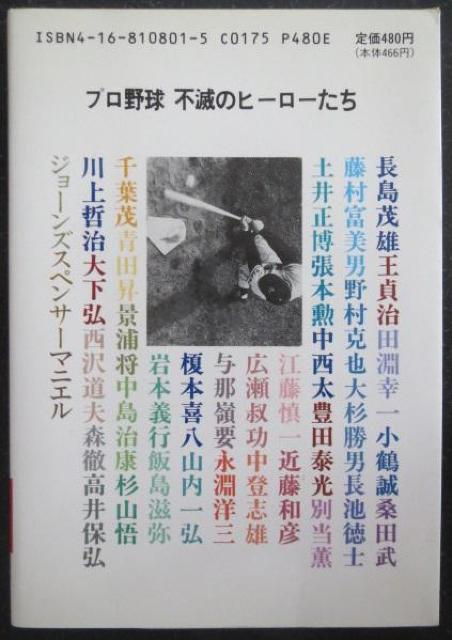 ISBN4-16-810801-5 C0175 P480E 定価480円
(本体466円)
プロ野球 不滅のヒーローたち
長島茂雄王貞治田淵幸一小鶴誠桑田武
藤村富美男野村克也大杉勝男長池徳士
土井正博張本勲中西太豊田泰光別当薫
江藤慎一近藤和彦
広瀬叔功中登志雄
与那嶺要永淵洋三
榎本喜八山内一弘
岩本義行飯島滋弥
千葉茂青田昇景浦将中島治康杉山悟
川上哲治大下弘西沢道夫森徹高井保弘
ジョーンズスペンサーマニエル